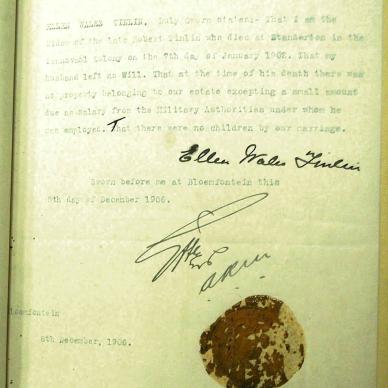 ELLEN WALES TINLIN. Duly Sworn states:- That I am the
Widow of the late Robert Tinlin who died at Standerton in the
Transvaal Colony on the 7th day of January 1902. That my
husband left no Will. That at the time of his death there was
no property belonging to our estate excepting a small amount
due as salary from the Military Authorities under whom he
was employed. That there were no children by our marriage.
Ellen Wales Tinlin
Sworn before me at Bloemfontein this
8th day of December 1906.
loemfontein
8th December, 1906.